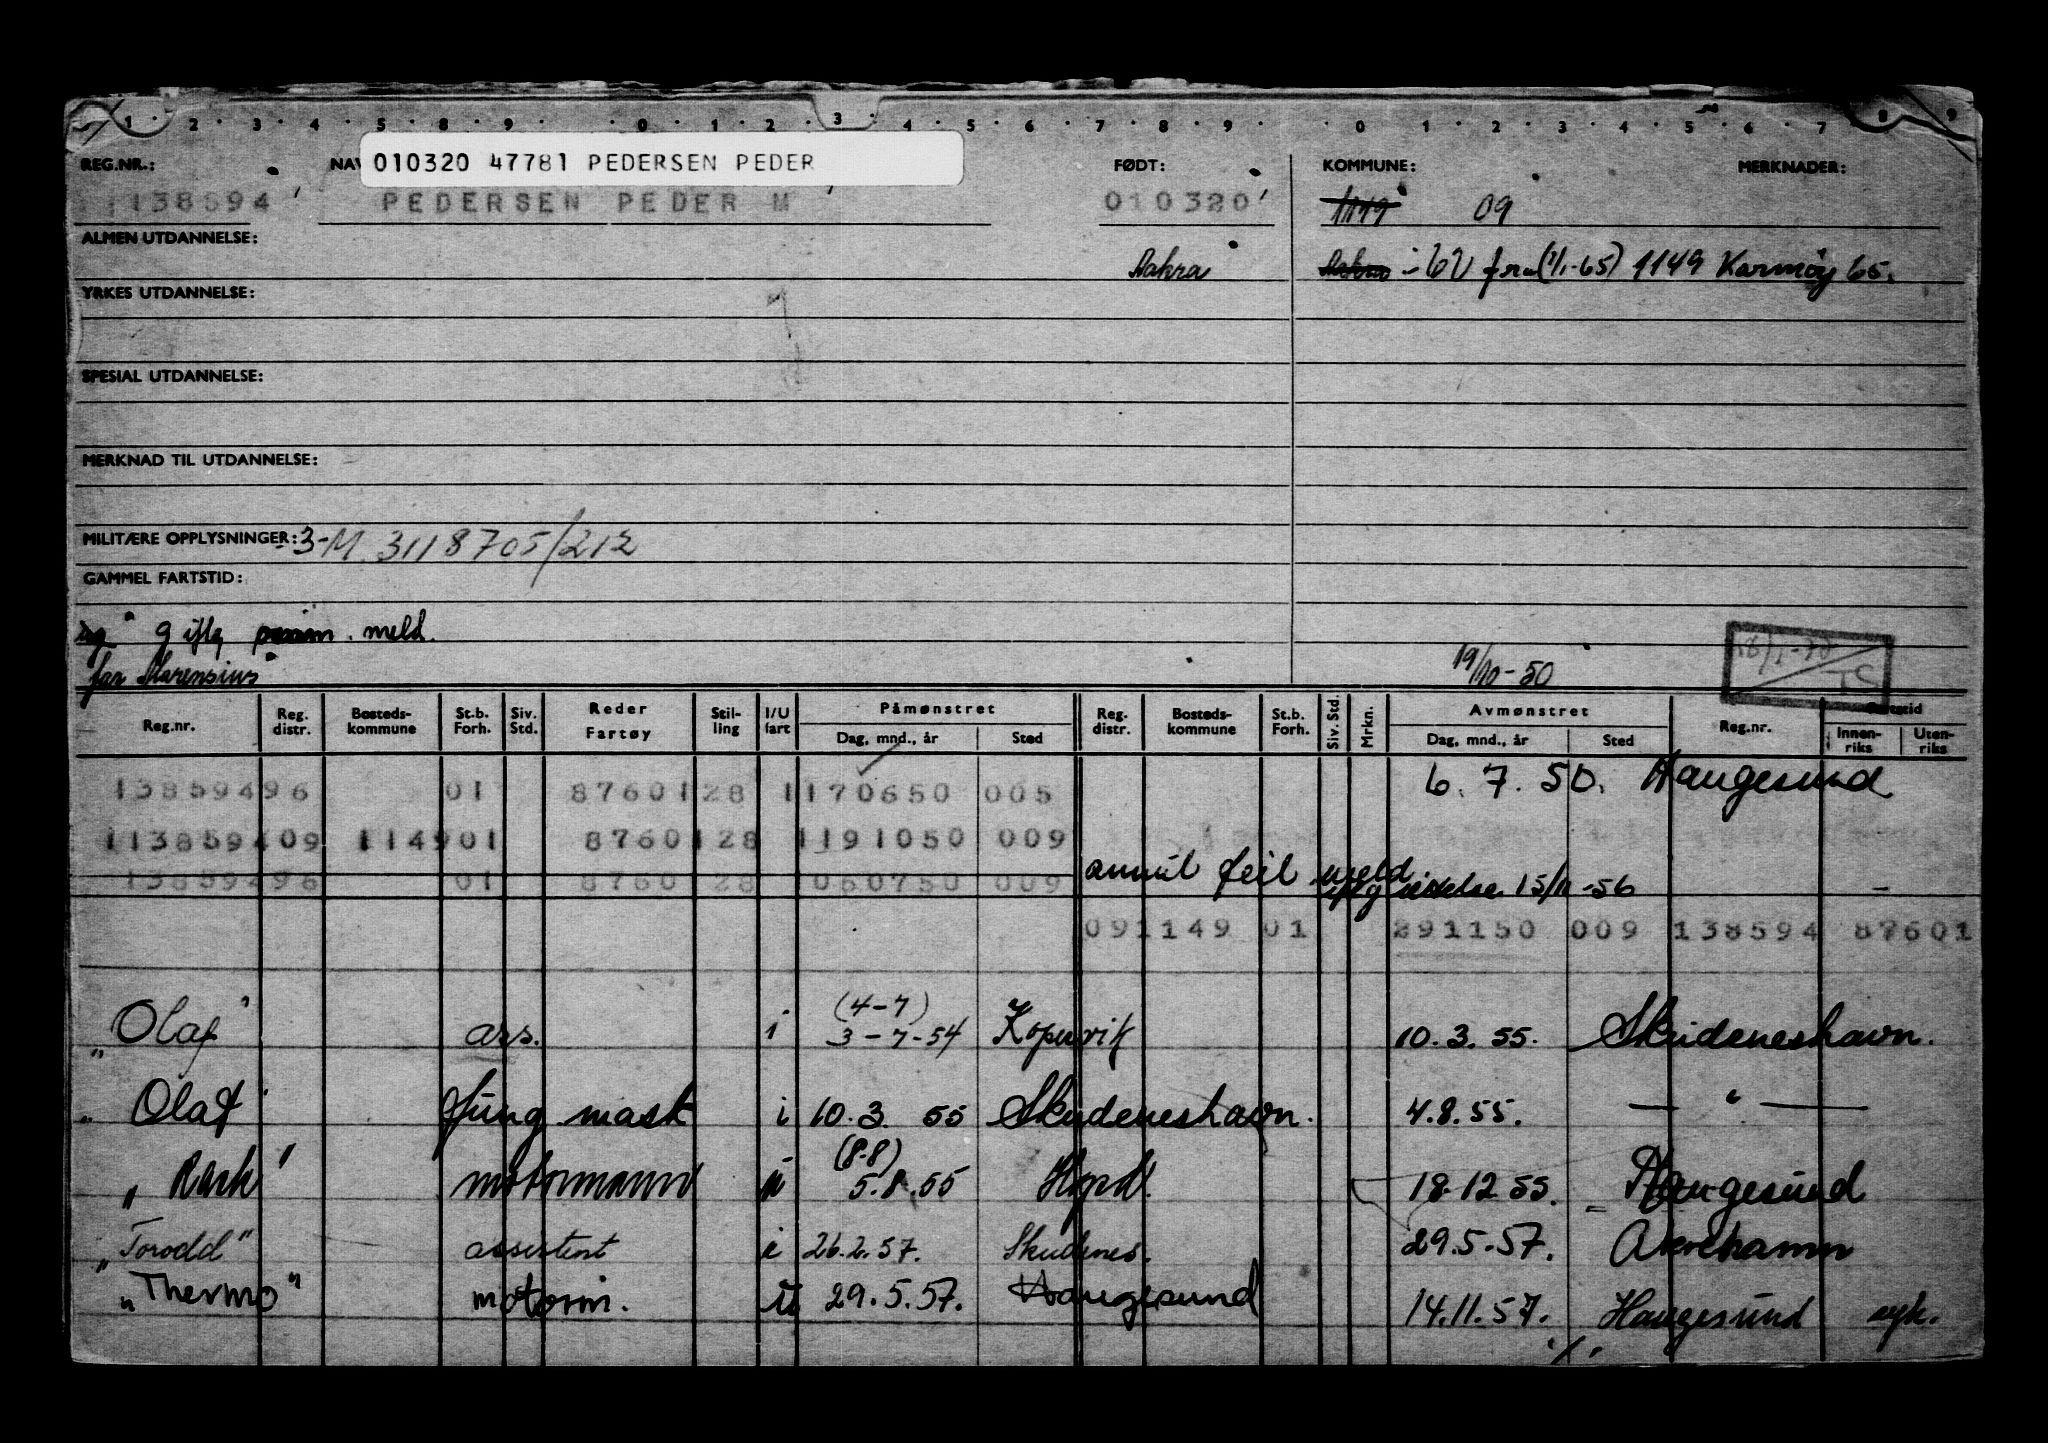 1 2 3 4 5 8 9 0 1 2 3 4 5 6 7 8 9 0 1 2 3 4 5 6 7 8 9
010320 47781 PEDERSEN PEDER
REG.NR.: NAV FØDT: KOMMUNE: MERKNADER:
138594 PEDERSEN PEDER M 010320 1149 09
ALMEN UTDANNELSE:
Aakra Aakra - 62 fra (1/1-65) 1149 Karmøy 65.
YRKES UTDANNELSE:
SPESIAL UTDANNELSE:
MERKNAD TIL UTDANNELSE:
MILITÆRE OPPLYSNINGER: 3-M. 3118705/212
GAMMEL FARTSTID:
meld.
far Marensius 19/10-50
Reg.nr. Reg. distr. Bosteds- kommune St.b. Forh. Siv. Std. Reder Fartøy Stil- ling I/U fart Påmønstret Dag, mnd., år Sted Reg. distr. Bosteds- kommune St.b. Forh. Siv. Std. Mrkn. Avmønstret Dag, mnd., år Sted Reg.nr. Innen- riks Uten- riks
13859496 01 8760128 1170650 005 6. 7. 50. Haugesund
113859409 114901 8760128 1191050 009
13859496 01 8760 128 060750 009 annul feil meld 15/11-56
091149 01 291150 009 138594 87601
"Olaf" ass. i (4-7) 3-7-54 Kopervik 10.3.55. Skudeneshavn.
"Olaf" Jung mask i 10.3 55 Skudeneshavn. 4.8.55. — " —
"Rask" motormann u (8-8) 5.8.55 Hgsd. 18.12 55. Haugesund
"Torodd" assistent i 26.2.57. Skudenes. 29.5.57. Åkrehamn
"Thermo" motorm. u 29.5.57. Haugesund 14.11.57. Haugesund syk.